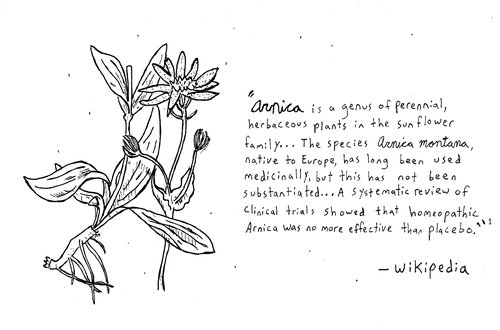 "Arnica is a genus of perennial,
herbaceous plants in the sunflower
family... The species Arnica montana,
native to Europe, has long been used
medicinally, but this has not been
substantiated... A systematic review of
clinical trials showed that homeopathic
Arnica was no more effective than placebo." 1
- Wikipedia